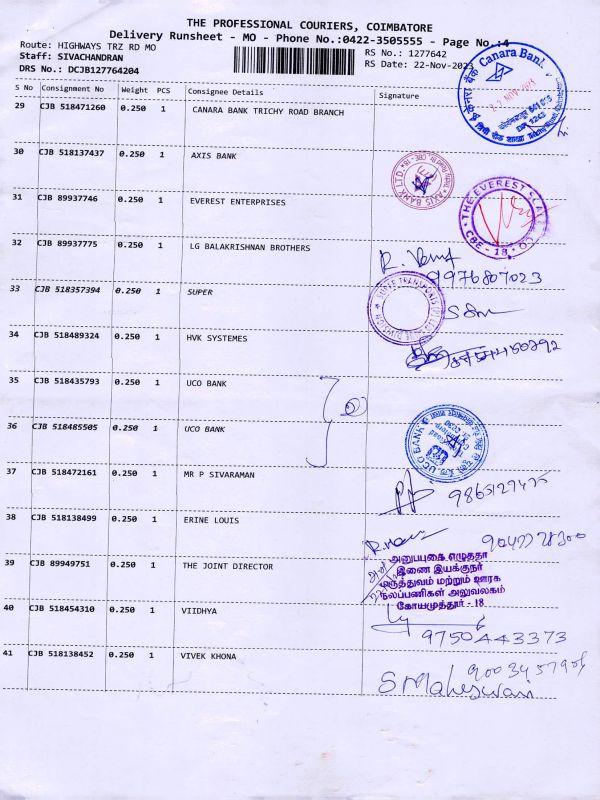 THE PROFESSIONAL COURIERS, COIMBATORE
Delivery Runsheet - MO - Phone No.:0422-3505555 - Page No.:4
Route: HIGHWAYS TRZ RD MO
Staff: SIVACHANDRAN
DRS No.: DCJB127764204
RS No.: 1277642
RS Date: 22-Nov-2023
S No Consignment No Weight PCS Consignee Details Signature
29 CJB 518471260 0.250 1 CANARA BANK TRICHY ROAD BRANCH
Canara Bank
केनरा बैंक
30 CJB 518137437 0.250 1 AXIS BANK
AXIS BANK LTD.
31 CJB 89937746 0.250 1 EVEREST ENTERPRISES
THE EVEREST
CBE - 18
32 CJB 89937775 0.250 1 LG BALAKRISHNAN BROTHERS
9976807023
33 CJB 518357394 0.250 1 SUPER
34 CJB 518489324 0.250 1 HVK SYSTEMES
35 CJB 518435793 0.250 1 UCO BANK
36 CJB 518485505 0.250 1 UCO BANK
UCO BANK
37 CJB 518472161 0.250 1 MR P SIVARAMAN
38 CJB 518138499 0.250 1 ERINE LOUIS
39 CJB 89949751 0.250 1 THE JOINT DIRECTOR
அனுபபுகை எழுததா
இணை இயக்குநர்
மருத்துவம் மற்றும் ஊரக
நலப்பணிகள் அலுவலகம்
கோயமுத்தூர் - 18
40 CJB 518454310 0.250 1 VIIDHYA
9750443373
41 CJB 518138452 0.250 1 VIVEK KHONA
S Maheswari